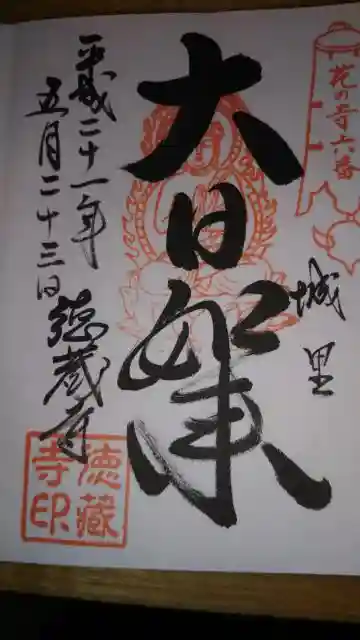 花の寺六番
城里
大日如来
平成二十一年
五月二十三日
徳蔵寺
徳蔵
寺印